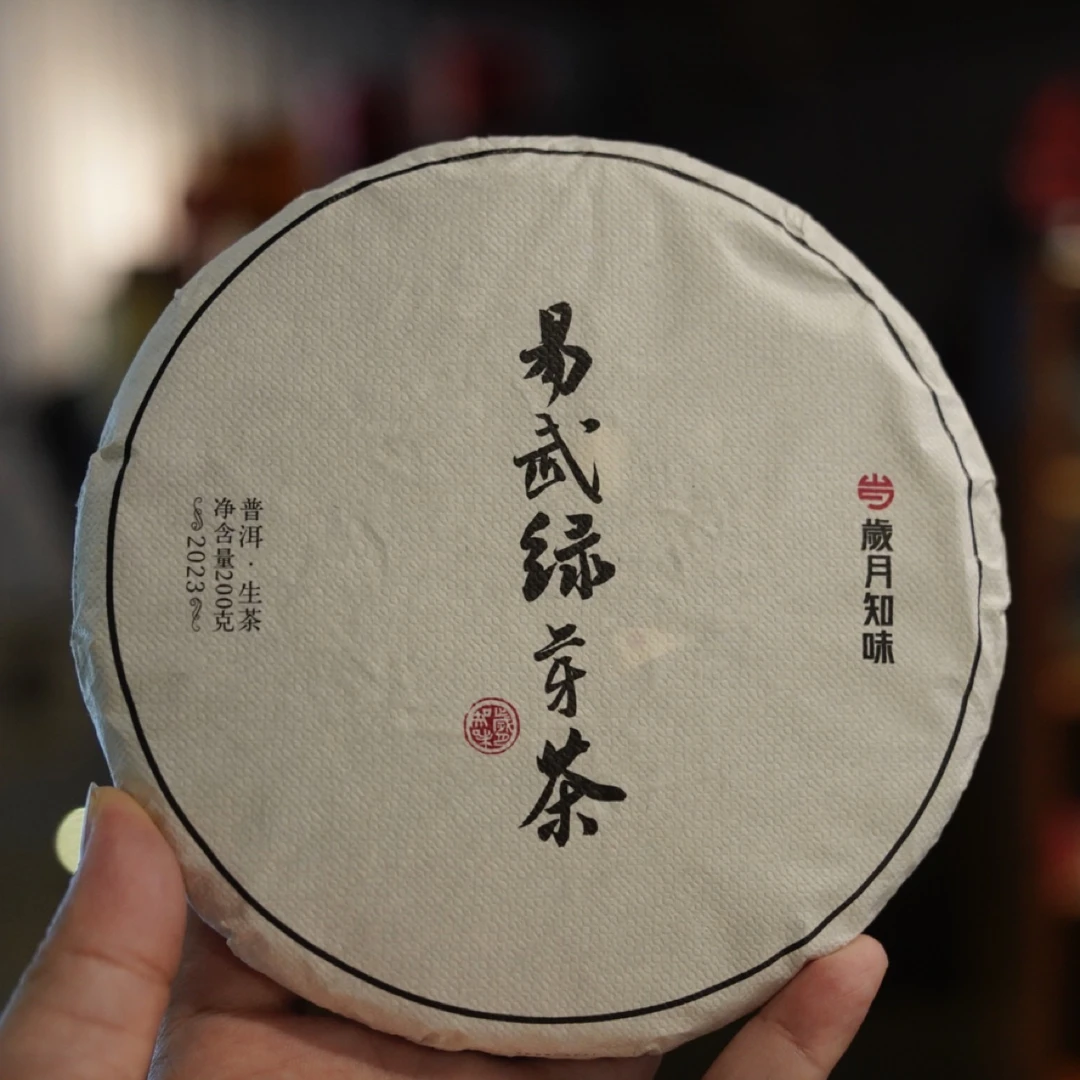 易武绿芽茶
歲月知味
普洱·生茶
净含量200克
2023
歲月知味